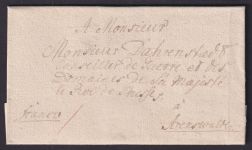 A Monsieur
Monsieur Dahrenstedt
Conseiller de Guerre et des
Domaines de Sa Majesté
le Roi de Prusse
à
franco
Arenswalde